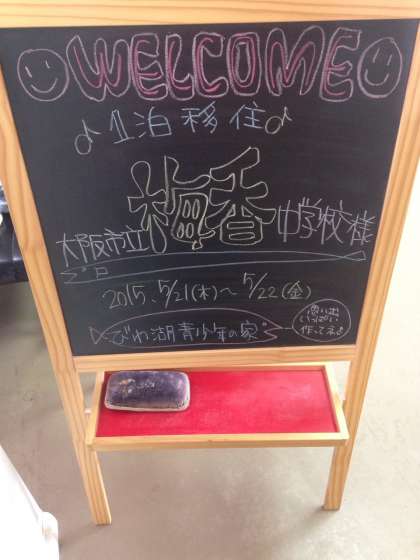 WELCOME
♪1泊移住♪
大阪市立梅香中学校様
2015. 5/21(木)～5/22(金)
びわ湖青少年の家
思い出
いっぱい
作ってネ♪